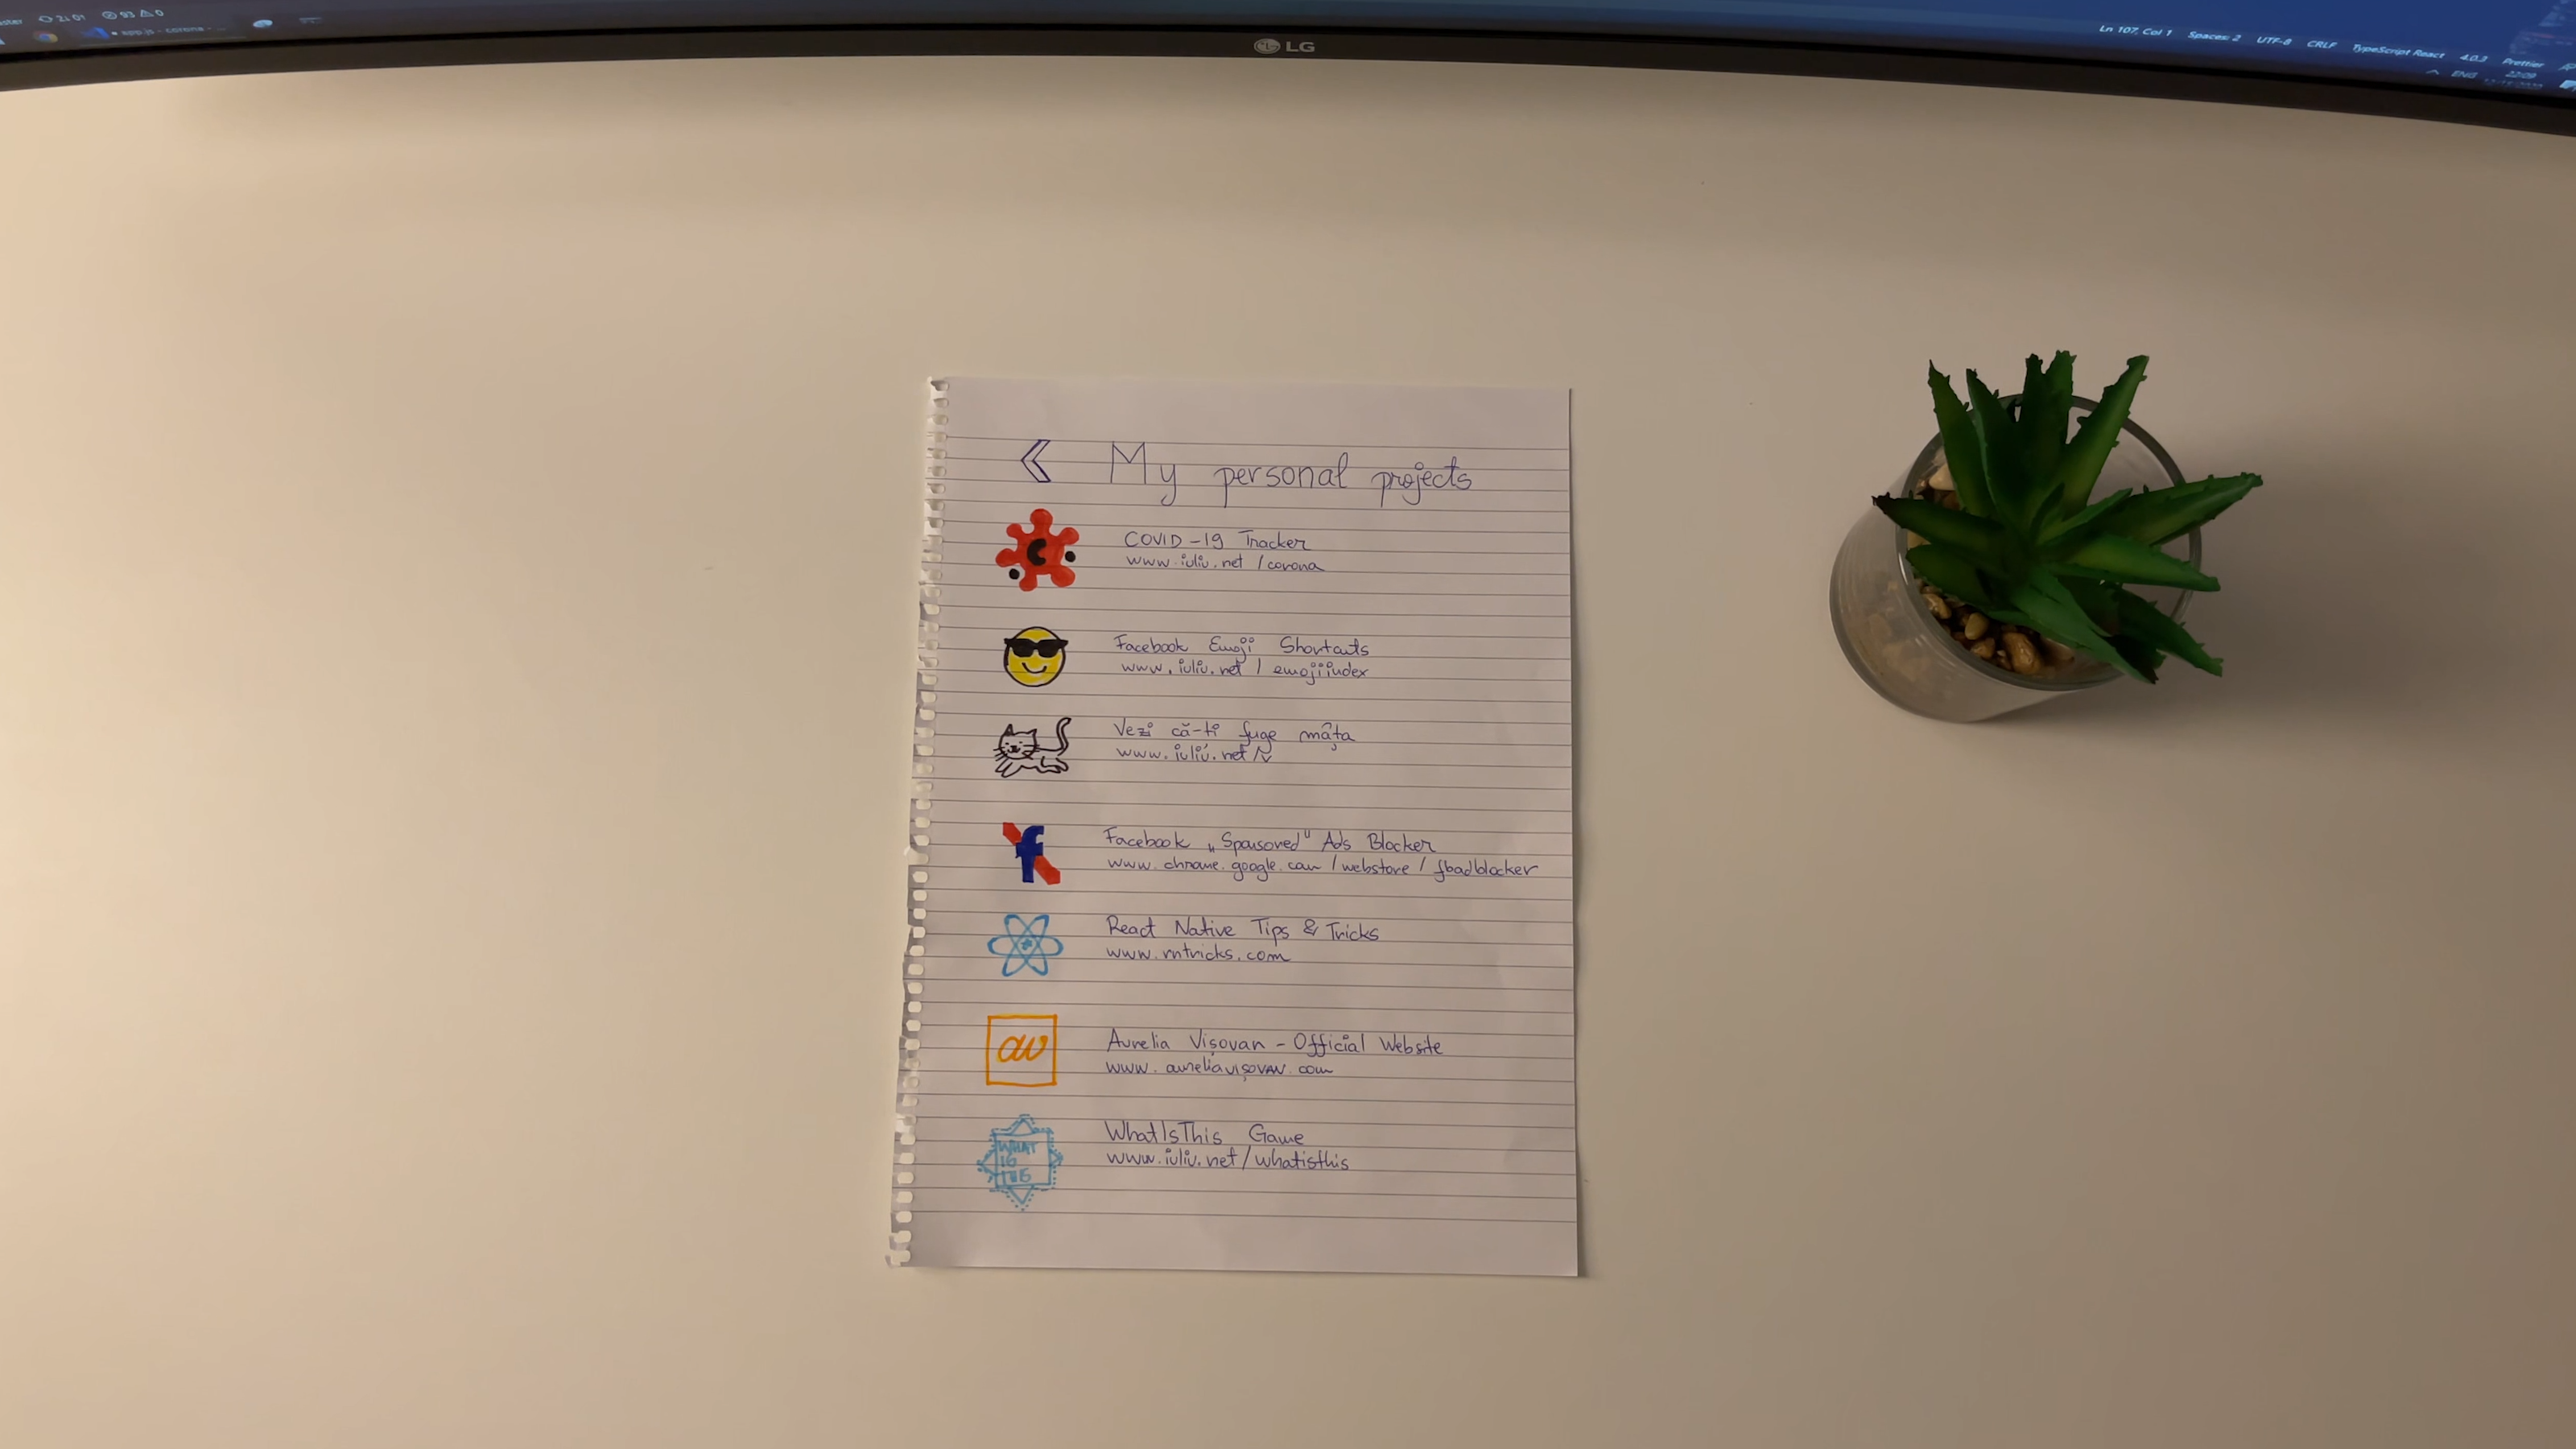 app.js - corona - ...
LG
Ln 107, Col 1 Spaces: 2 UTF-8 CRLF TypeScript React 4.0.3 Prettier
ENG 22:09
My personal projects
COVID-19 Tracker
www.iuliu.net/corona
Facebook Emoji Shortcuts
www.iuliu.net/emojiindex
Vezi că-ti fuge mâța
www.iuliu.net/v
Facebook „Sponsored" Ads Blocker
www.chrome.google.com/webstore/fbadblocker
React Native Tips & Tricks
www.rntricks.com
av
Aurelia Vișovan - Official Website
www.aureliavișovan.com
WHAT
IS
WhatIsThis Game
www.iuliu.net/whatisthis